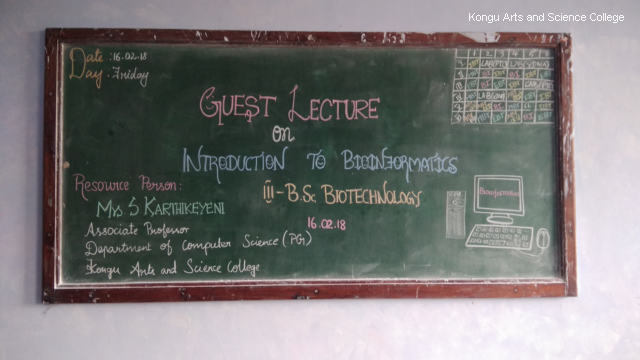 Kongu Arts and Science College
Date : 16.02.18
Day : Friday
1 2 3 4 5 6
GUEST LECTURE
on
INTRODUCTION TO BIOINFORMATICS
III - B.Sc BIOTECHNOLOGY
16.02.18
Resource Person:
Mrs S KARTHIKEYENI
Associate Professor
Department of Computer Science (PG)
Kongu Arts and Science College
Bioinformatics